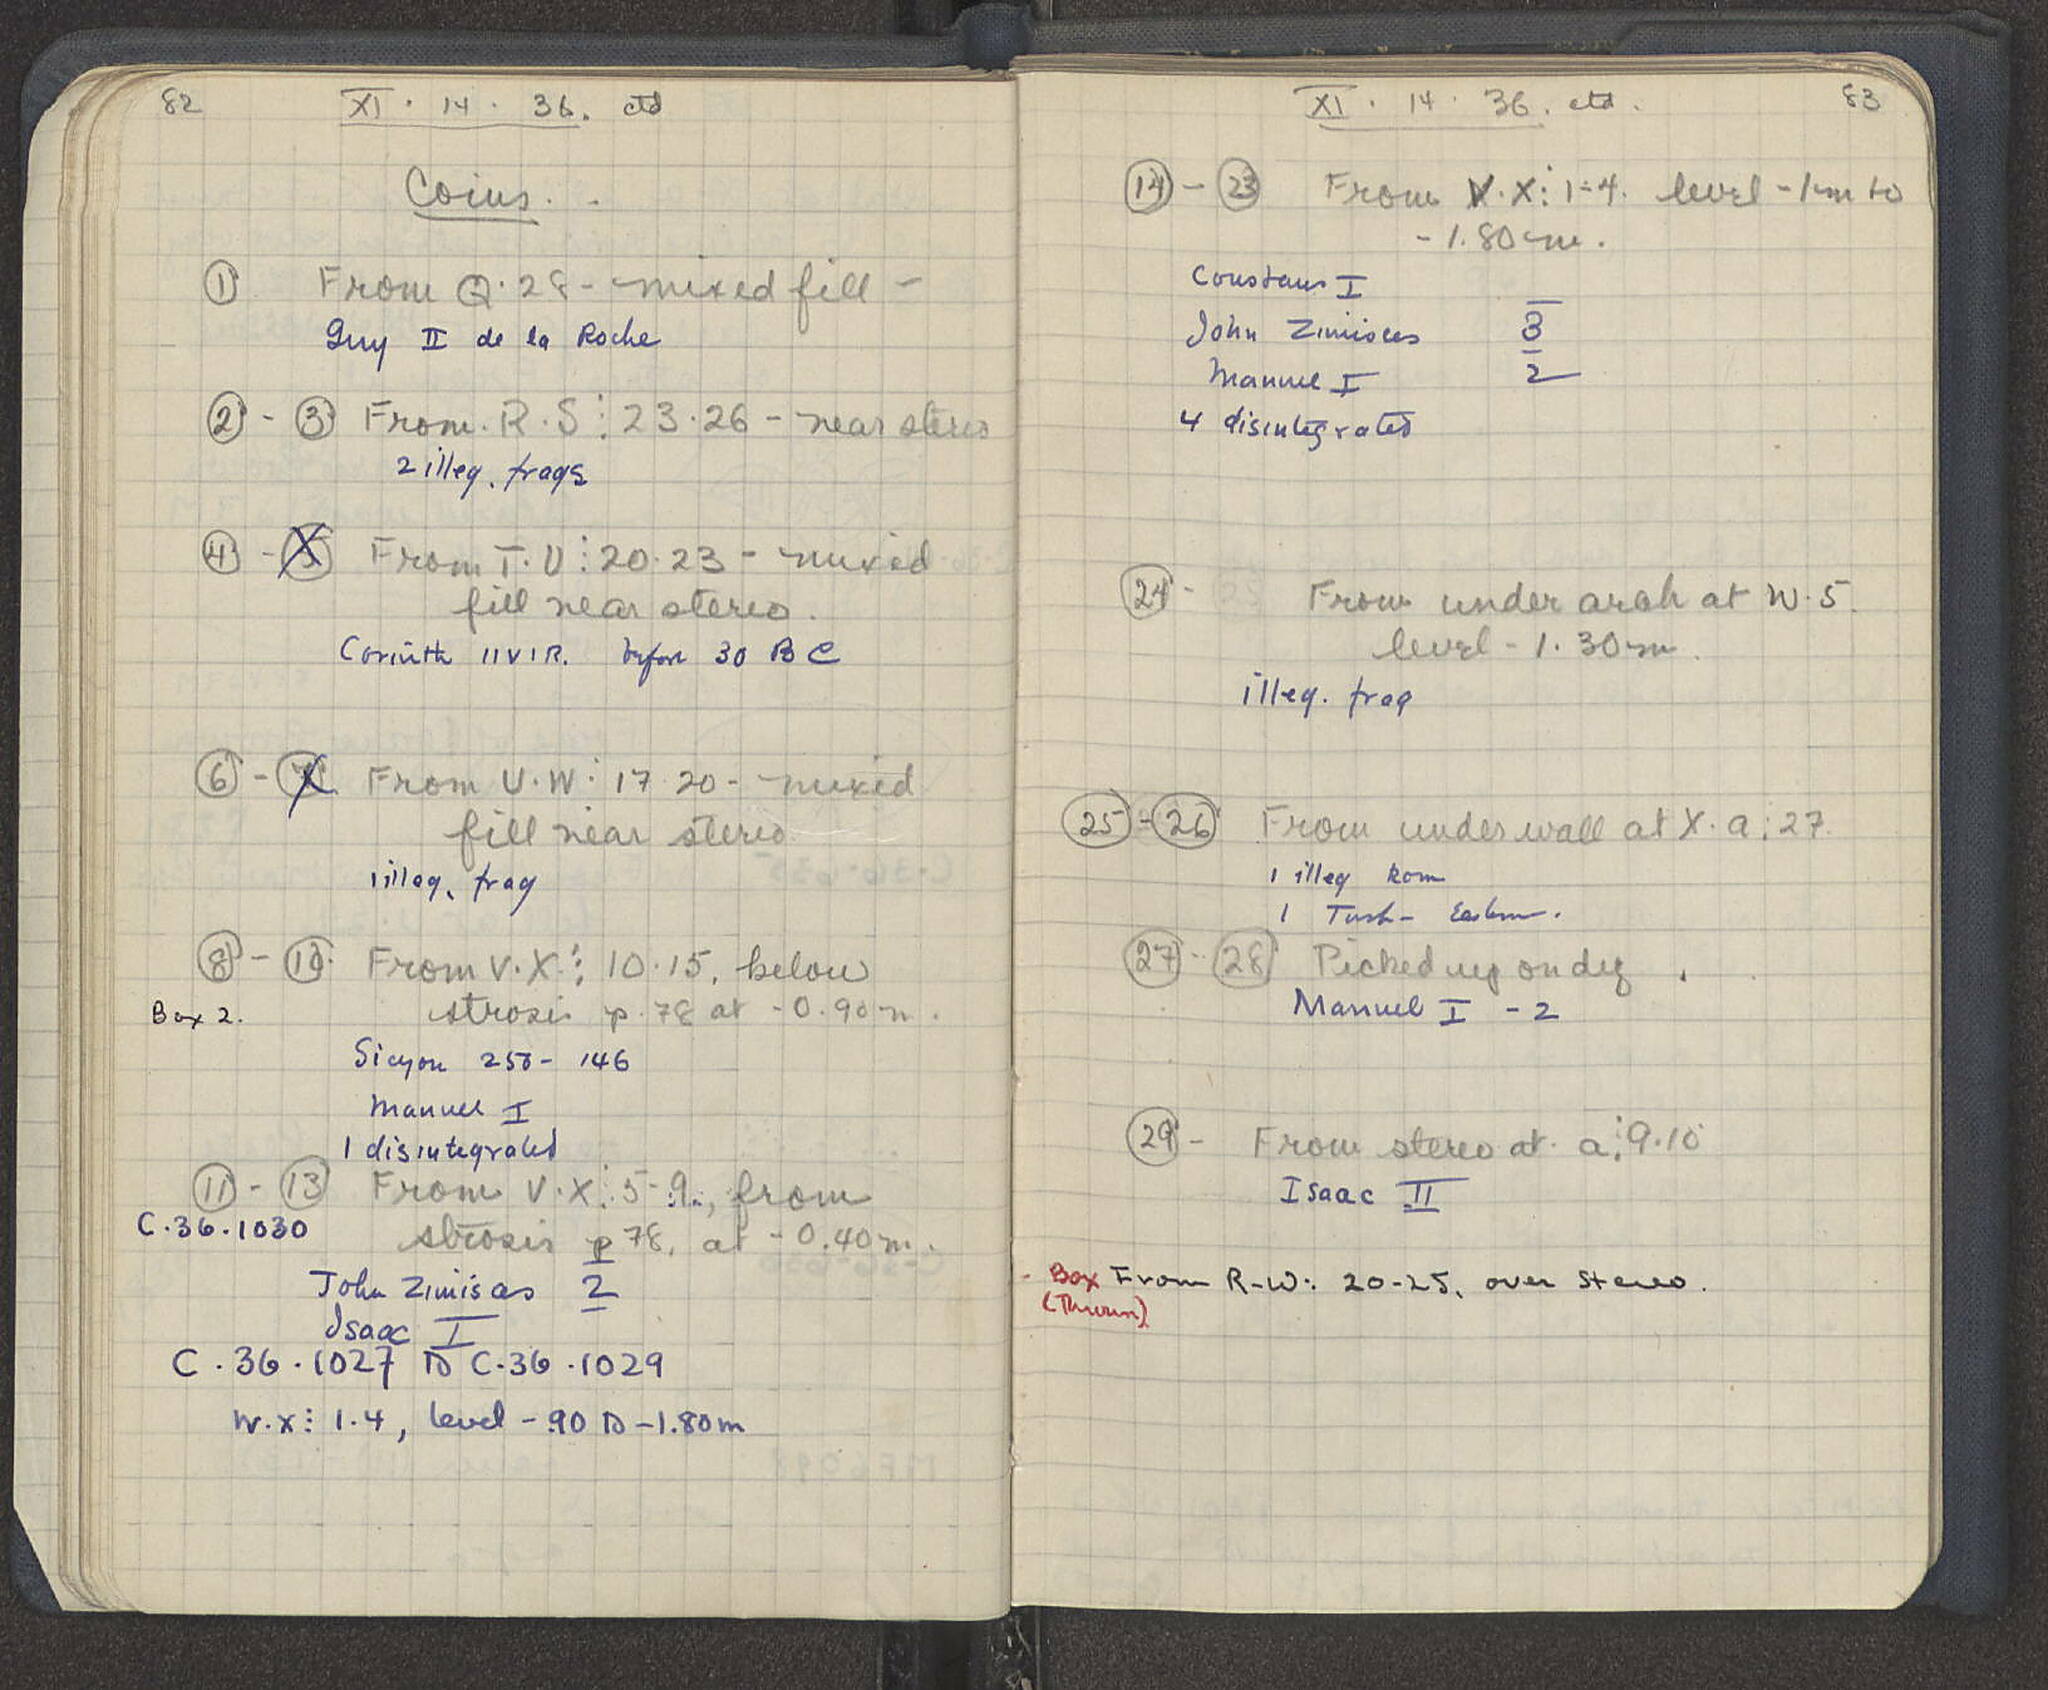 82
XI · 14 · 36. ctd
Coins.
① From Q·28 - mixed fill -
Guy II de la Roche
② - ③ From R·S⋮23·26 - near stereo
2 illeg. frags
④ - ⑤ From T·U⋮20·23 - mixed
fill near stereo.
Corinth IIVIR. before 30 BC
⑥ - ⑦ From U·W⋮17·20 - mixed
fill near stereo
illeg. frag
⑧ - ⑩ From V·X⋮10·15, below
strosis p. 78 at -0.90m.
Box 2.
Sicyon 250 - 146
Manuel I
1 disintegrated
⑪ - ⑬ From V·X⋮5-9, from
C·36·1030
strosis p 78, at -0.40m.
John Zimisces 2
Isaac I
C·36·1027 to C·36·1029
W·X⋮1·4, level -.90 to -1.80m
XI · 14 · 36. ctd.
83
⑭ - ㉓ From V·X⋮1-4. level -1m to
-1.80m.
Constans I
John Zimisces 3
Manuel I 2
4 disintegrated
㉔ - From under arch at W·5.
level -1.30m.
illeg. frag
㉕ - ㉖ From under wall at X·a⋮27.
1 illeg Rom
1 Turk- Eastern.
㉗ - ㉘ Picked up on dig.
Manuel I - 2
㉙ - From stereo at a⋮9·10
Isaac II
- Box From R-W: 20-25. over Stereo.
(Thrown)